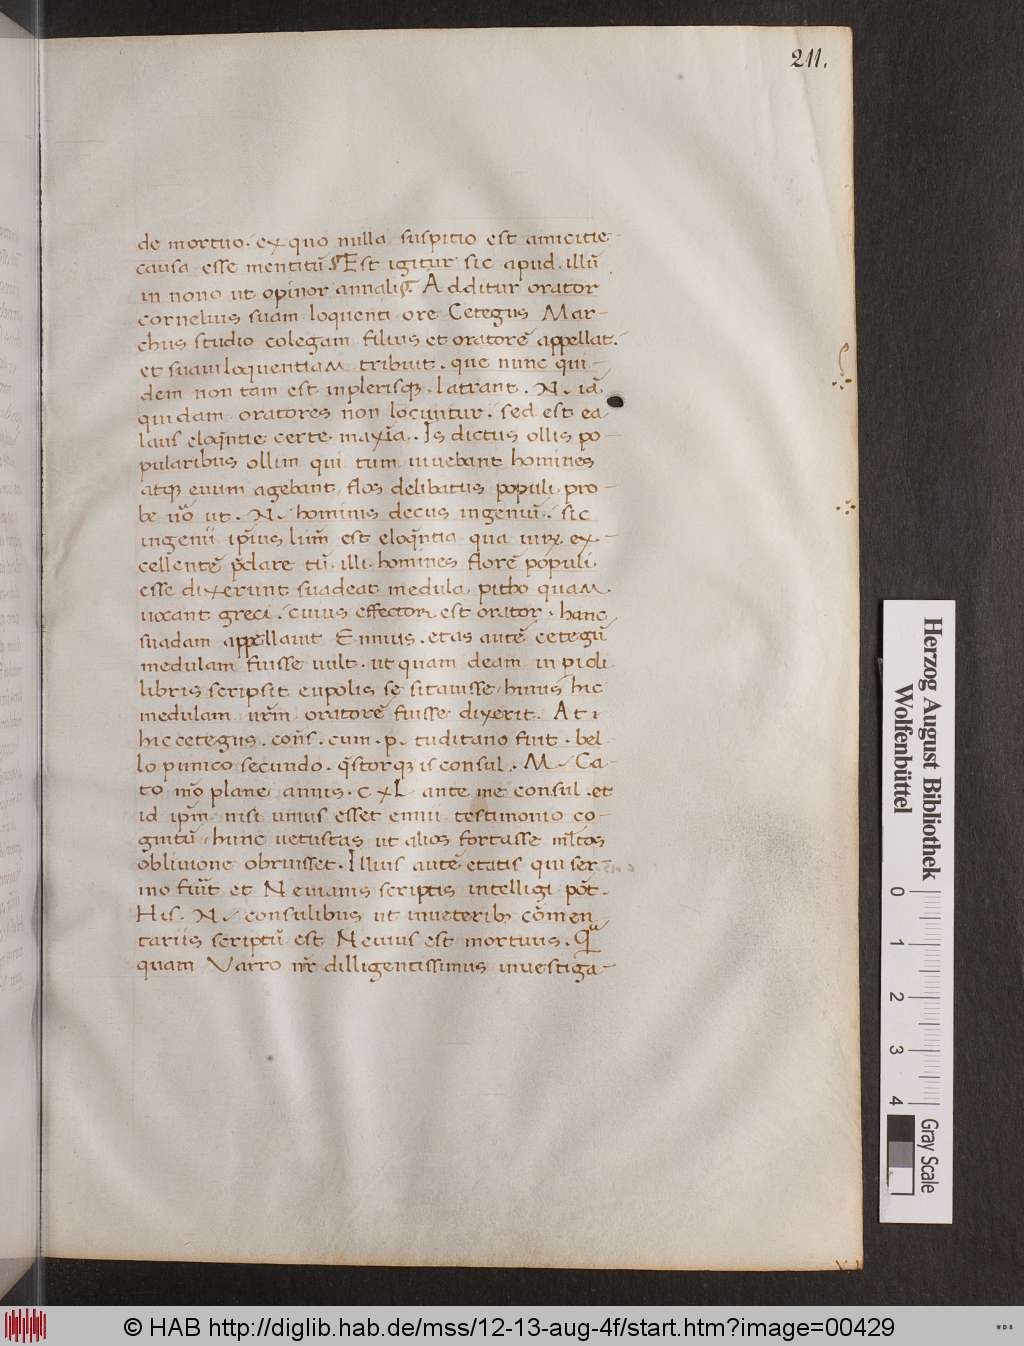 211.
de mortuo. ex quo nulla suspitio est amicitie
causa esse mentitū Est igitur sic apud illū
in nono ut opinor annali. Additur orator
cornelius suam loquenti ore Cetegus Mar-
chus studio colegam filius et oratorē appellat.
et suauiloquentiam tribuit. que nunc qui-
dem non tam est inplerisq. latrant. N. iā
quidam oratores non locuntur. sed est ea
laus eloq̄ntie certe maxīa. Is dictus ollis po-
pularibus ollim qui tum uiuebant homines
atq euum agebant, flos delibatus populi. pro-
be ūo ut. N. hominis decus ingeniū. sic
ingenii ip̄ius lum̄ est eloq̄ntia qua uirꝝ ex-
cellentē p̄clare tū. illi. homines florē populi.
esse dixerunt suadeat medula pitho quam.
uocant greci. cuius effector est orator. hanc
suadam appellauit Ennius. etas autē cetegū
medulam fuisse uult. ut quam deam in pidi
libris scripsit eupolis se sitauisse, huius hic
medulam ur̄m oratorē fuisse dixerit. At
hic cetegus. coñs. cum. p. tuditano fuit. bel
lo punico secundo. q̄storq is consul. M. Ca-
to m̄o plane annis. cxL ante me consul. et
id ip̄m nisi unius esset ennii testimonio co-
gnitū, hunc uetustas ut alios fortasse m̄ltos
obliuione obruisset. Illius autē etatis qui ser
mo fuit et Neuianis scriptis intelligi pōt.
His. N. consulibus ut inueterib; cōmen
tariis scriptū est Neuius est mortuus. Q
quam Varro nr̄ dilligentissimus inuestiga-
Herzog August Bibliothek
Wolfenbüttel
0 1 2 3 4
Gray Scale
© HAB http://diglib.hab.de/mss/12-13-aug-4f/start.htm?image=00429